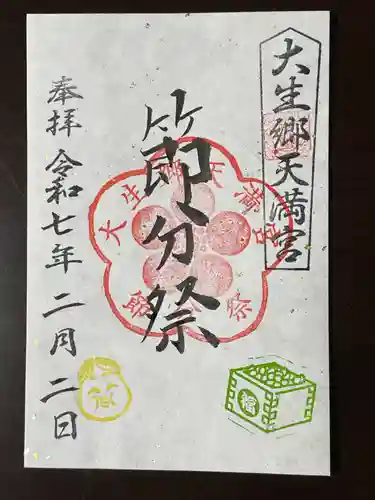 大生郷天満宮
節分祭
大生郷天満宮
節分祭
奉拝 令和七年 二月 二日
福